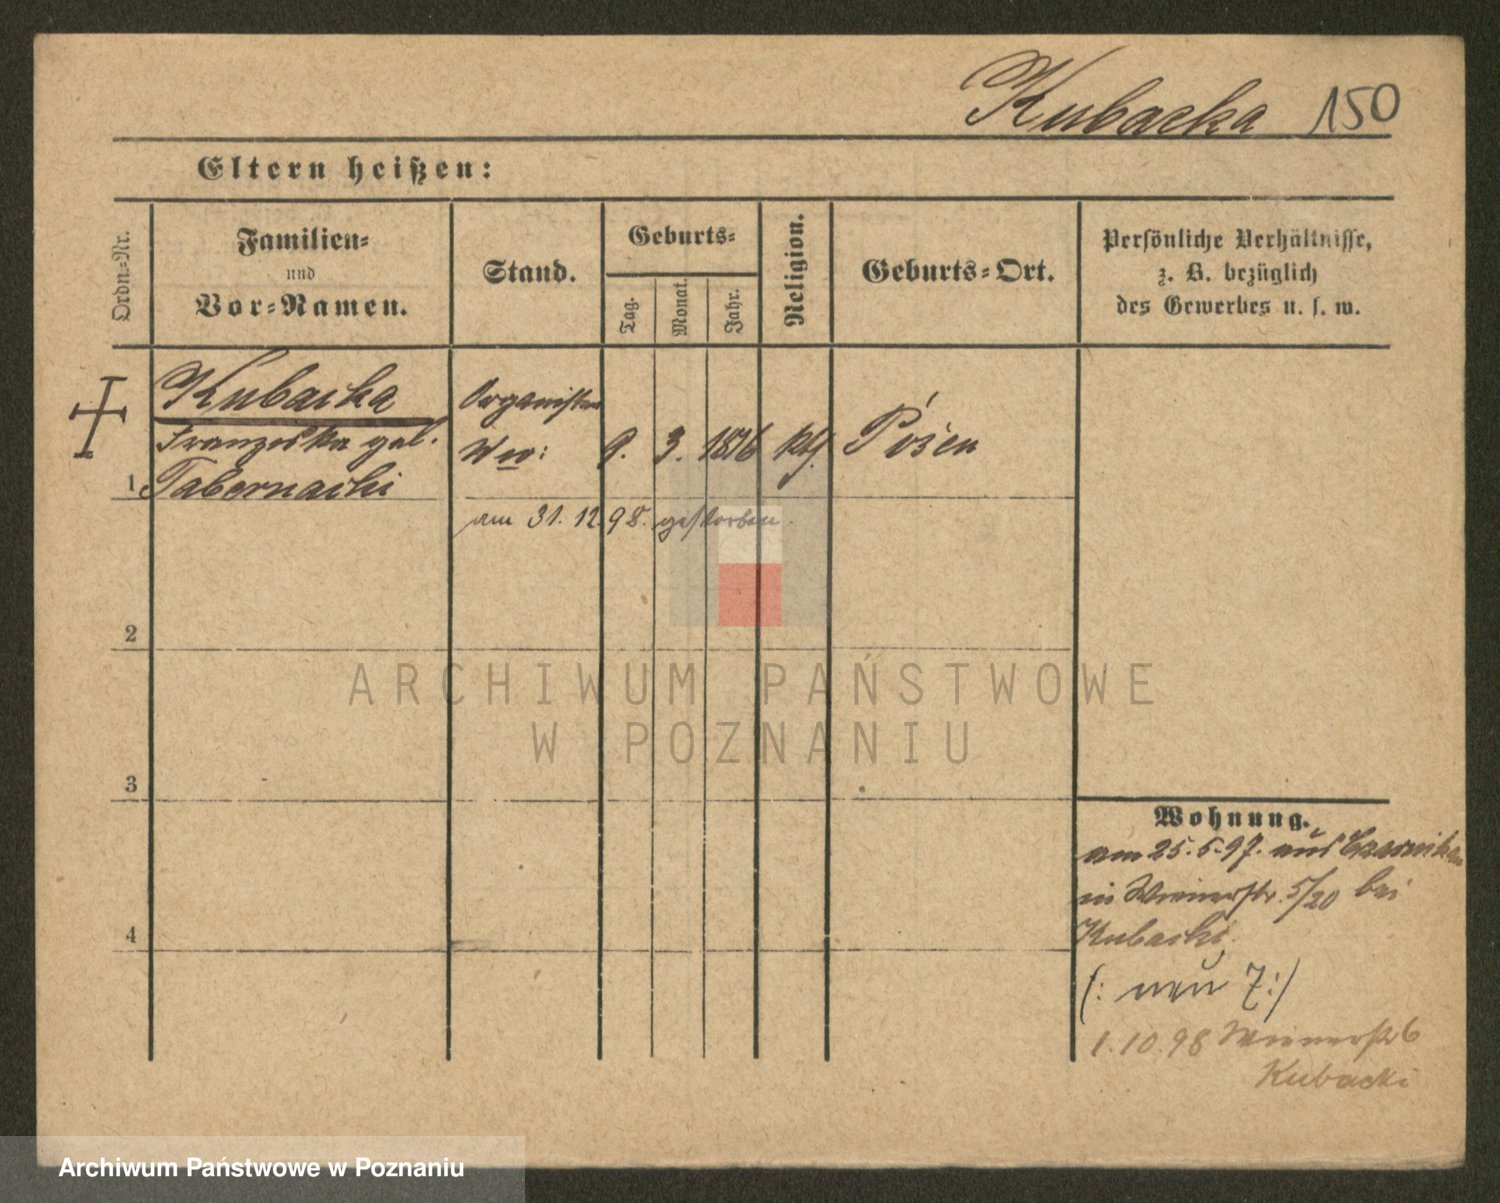 Kubacka 150
Eltern heißen:
Ordn.=Nr.
Familien=
und
Vor=Namen.
Stand.
Geburts=
Tag.
Monat.
Jahr.
Religion.
Geburts=Ort.
Persönliche Verhältnisse,
z. B. bezüglich
des Gewerbes u. s. w.
Kubacka
Franziska geb.
1 Tabernacki
Organisten
Ww:
9. 3. 1816 kth. Posen
am 31. 12. 98. gestorben.
2
3
4
Wohnung.
am 25. 5. 97. aus Czarnikau
in Wienerstr. 5/20 bei
Kubacki
(: neu 7:)
1.10.98 Wienerstr 6
Kubacki
ARCHIWUM PAŃSTWOWE
W POZNANIU
Archiwum Państwowe w Poznaniu